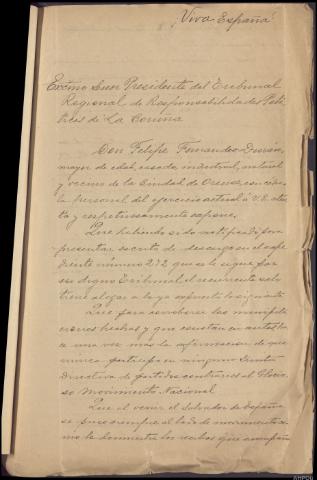 ¡Viva España!
Excmo Señor Presidente del Tribunal
Regional de Responsabilidades Polí
ticas de La Coruña
Don Felipe Fernandez Durán,
mayor de edad, casado, industrial, natural
y vecino de la Ciudad de Orense, con cédu
la personal del ejercicio actual á V.E. aten
ta y respetuosamente expone:
Que habiendo sido notificado para
presentar escrito de descargo en el expe
diente número 272 que se le sigue por
ese digno Tribunal el recurrente solo
tiene alegar a lo ya expuesto lo siguiente
Que para corroborar las manifesta
ciones hechas y que constan en autos ha
ce una vez mas la afirmacion de que
nunca participó en ninguna Junta
directiva de partidos contrarios al Glorio
so Movimiento Nacional
Que al venir el Salvador de España
se puso siempre al lado de movimiento co
mo lo demuestra los recibos que acompaña
AHPOU